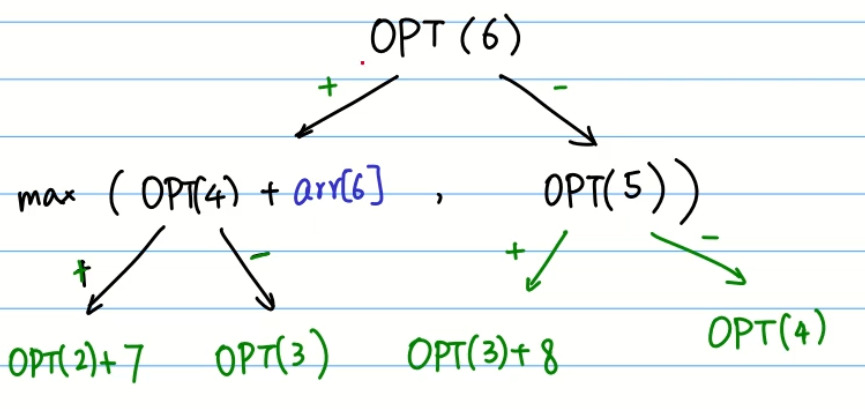 OPT (6)
+ -
max ( OPT(4) + arr[6] , OPT(5) )
+ - + -
OPT(2)+7 OPT(3) OPT(3)+8 OPT(4)